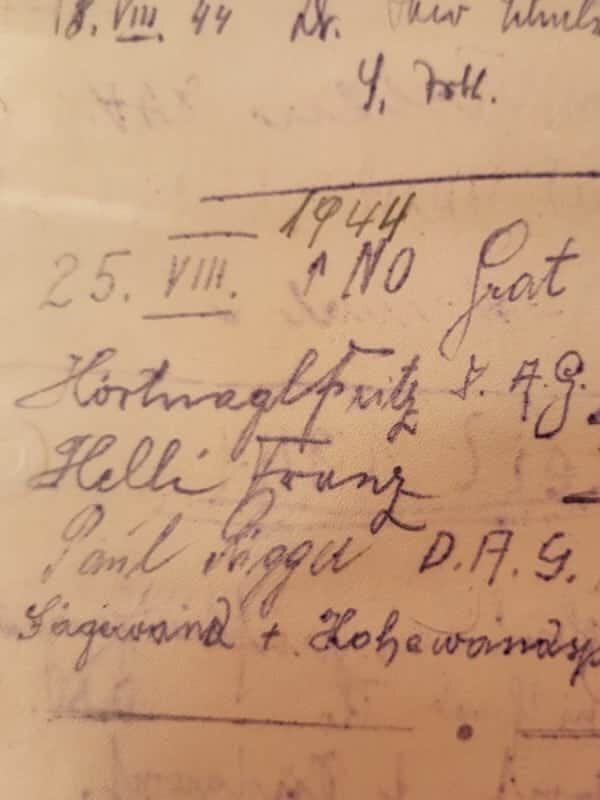 18. VIII. 44 Dr.
1944
25. VIII. ↑ NO Grat
Hörtnagl Fritz J. A.G.
Helli Franz
Paul D.A.G.
Sägewand + Hohewandsp